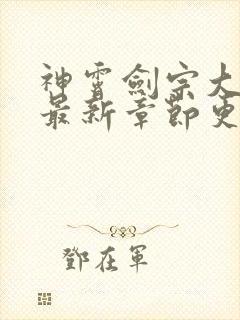 神霄劍宗大
最新章節更
鄧在軍